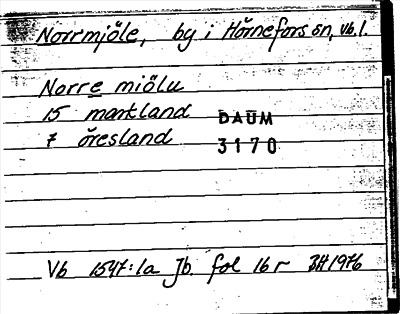 Norrmjöle, by i Hörnefors sn, Vb.l.
Norre miölu
15 markland DAUM
7 öresland 3170
Vb 1547:1a Jb. fol 16 r BH 1976